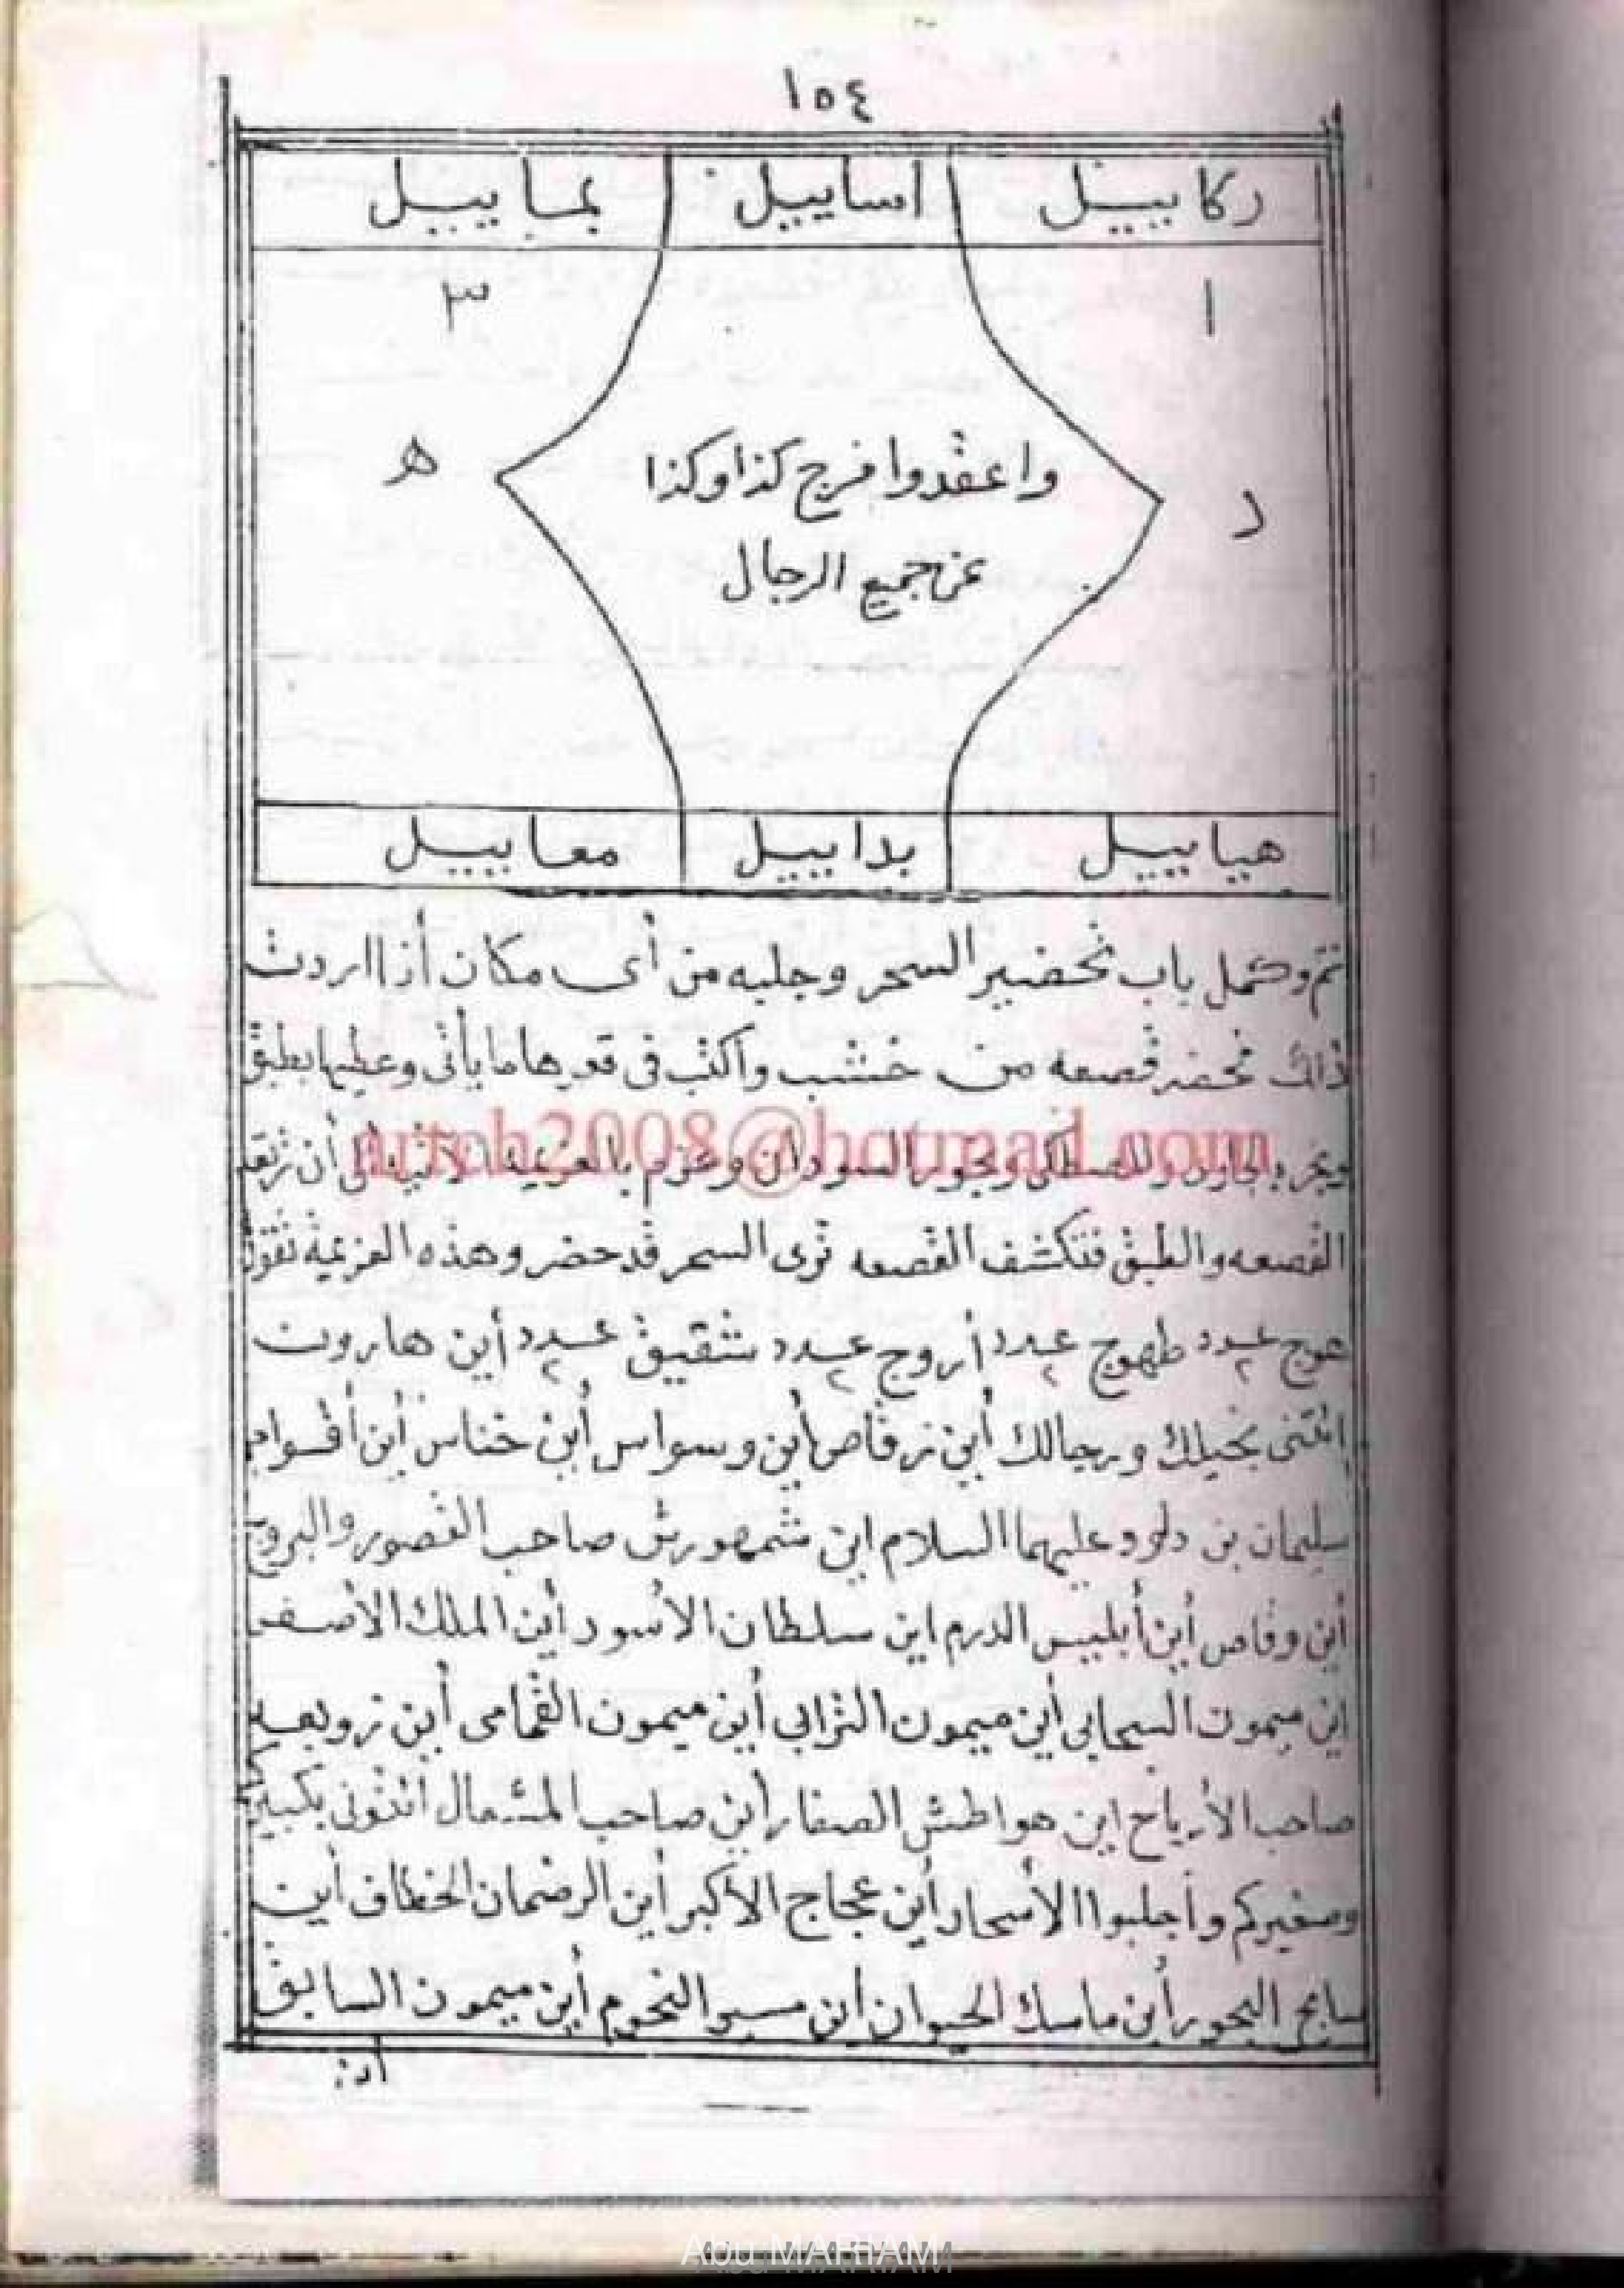 ١٥٤
ركاييل اساييل بماييل
١ ٣
واعقدوا فرج كذا وكذا
د ه
عن جميع الرجال
هياييل بداييل معاييل
تم وكمل باب تحضير السحر وجلبه من أى مكان أذا اردت
ذالك تحضر قصعه من خشب واكتب فى قعرها ما يأتى وعطيها بطبق
السودان وعزم أن
artch2008@hotmail.com
القصعه والطبق فتكشف القصعه ترى السحر قد حضر وهذه العزيمة تقول
هوج عدد ٢ طهوج عدد ٢ أروج عدد ٢ شقيق عدد ٢ أين هاروت
ائتنى بخيلك ورجالك أين زرقاص أين وسواس أين خناس أين أقوام
سليمان بن داود عليهما السلام اين شمهورش صاحب القصور والبروج
أين وقاص أين أبليس الدرم اين سلطان الأسود أين الملك الأصف
اين ميمون السحابى أين ميمون الترابي أين ميمون الغمامى أين زوبعه
صاحب الأرياح اين هواطش الصفار أين صاحب المشعال ائتونى بكبيركم
وصغيركم وأجلبوا الأسحار أين عجاج الأكبر أين الرضمان الخطاف أين
سابح البحور أين ماسك الحيوان اين مسير النجوم أين ميمون السابق
Abu MARIAM